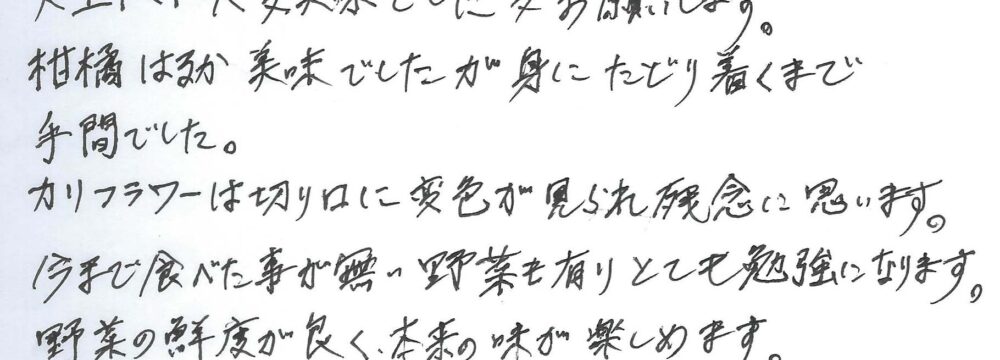 大変美味でした又お願いします。
柑橘はるか美味でしたが身にたどり着くまで
手間でした。
カリフラワーは切り口に変色が見られ残念に思います。
今まで食べた事が無い野菜も有りとても勉強になります。
野菜の鮮度が良く、本来の味が楽しめます。